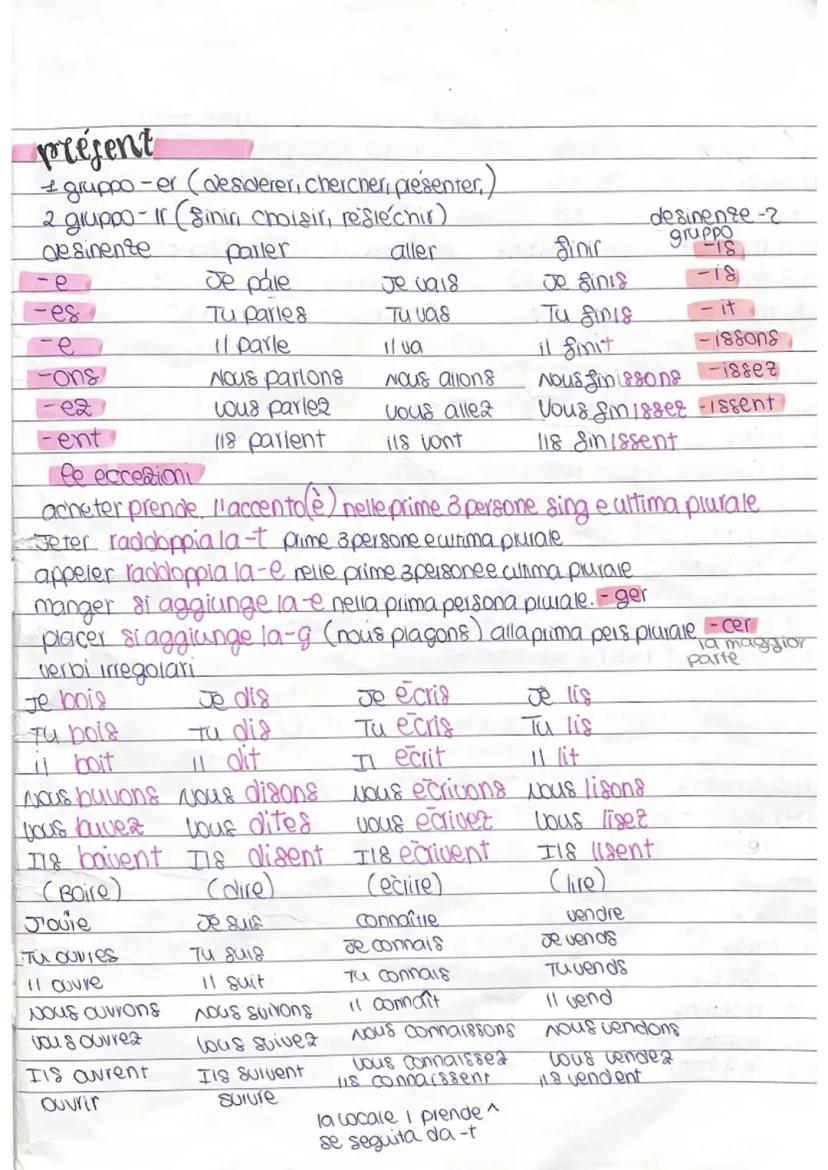 présent
1 gruppo -er (desiderer, chercher, présenter,)
2 gruppo -ir (finir, choisir, refléchir)
desinenze -2 gruppo
desinenze parler aller finir -is
-e Je pale Je vais Je finis -is
-es Tu parles Tu vas Tu finis -it
-e il parle il va il finit -issons
-ons Nous parlons Nous allons Nous finissons -issez
-ez Vous parlez Vous allez Vous finissez -issent
-ent ils parlent ils vont ils finissent
le eccezioni
acheter prende l'accento(è) nelle prime 3 persone sing e ultima plurale
Jeter raddoppia la -t prime 3 persone e ultima plurale
appeler raddoppia la -e nelle prime 3 persone e ultima plurale
manger si aggiunge la -e nella prima persona plurale. -ger
placer si aggiunge la -g (nous plagons) alla prima pers plurale -cer
la maggior parte
verbi irregolari
Je bois Je dis Je ēcris Je lis
Tu bois Tu dis Tu ēcris Tu lis
il boit il dit Il ēcrit Il lit
Nous buvons Nous disons Nous ēcrivons Nous lisons
Vous buvez Vous dites Vous ēcrivez Vous lisez
Ils boivent Ils disent Ils ēcrivent Ils lisent
(Boire) (dire) (ecrire) (lire)
J'ouvre Je suis connaître vendre
Tu ouvres Tu suis Je connais Je vends
Il ouvre Il suit Tu connais Tu vends
Nous ouvrons Nous suivons Il connaît Il vend
Vous ouvrez Vous suivez Nous connaissons Nous vendons
Ils ouvrent Ils suivent Vous connaissez Vous vendez
ils connaissent ils vendent
ouvrir suivre
la vocale i prende ^
se seguita da -t